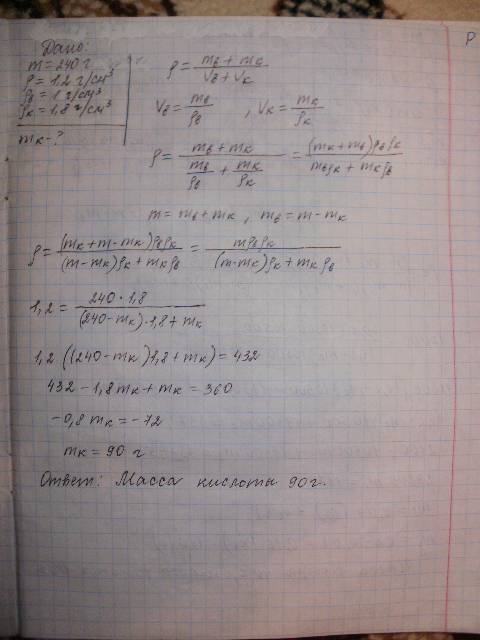 Дано:
m = 240 г
ρ = 1,2 г/см³
ρв = 1 г/см³
ρк = 1,8 г/см³
mк - ?
ρ = (mв + mк)/(Vв + Vк)
Vв = mв/ρв , Vк = mк/ρк
ρ = (mв + mк)/(mв/ρв + mк/ρк) = (mк + mв)ρвρк/(mвρк + mкρв)
m = mв + mк , mв = m - mк
ρ = (mк + m - mк)ρвρк/((m - mк)ρк + mкρв) = mρвρк/((m - mк)ρк + mкρв)
1,2 = 240 · 1,8/((240 - mк) · 1,8 + mк)
1,2 ((240 - mк)1,8 + mк) = 432
432 - 1,8 mк + mк = 360
-0,8 mк = -72
mк = 90 г
Ответ: Масса кислоты 90 г.
Р